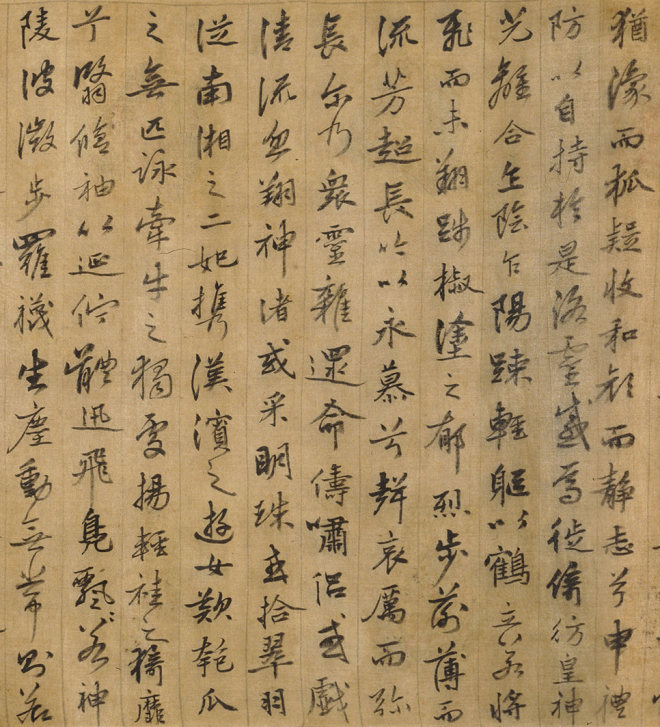 猶豫而狐疑收和顏而靜志兮申禮
防以自持於是洛靈感焉徙倚彷皇神
光離合乍陰乍陽竦輕軀以鶴立若將
飛而未翔踐椒塗之郁烈步蘅薄而
流芳超長吟以永慕兮聲哀厲而彌
長爾乃衆靈雜遝命儔嘯侶或戲
清流或翔神渚或采明珠或拾翠羽
從南湘之二妃攜漢濱之遊女歎匏瓜
之無匹詠牽牛之獨處揚輕袿之猗靡
兮翳脩袖以延佇體迅飛鳧飄〻若神
陵波微步羅襪生塵動無常則若